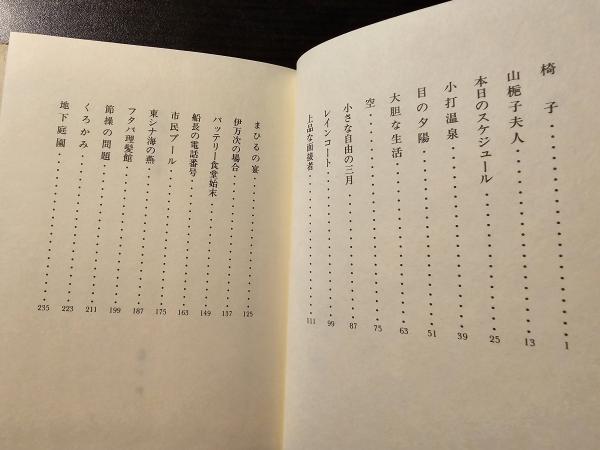 椅子・・・・・・・・・・・・・・・・・・・・1
山梔子夫人・・・・・・・・・・・・・・・・13
本日のスケジュール・・・・・・・・・・25
小打温泉・・・・・・・・・・・・・・・・・39
目の夕陽・・・・・・・・・・・・・・・・・51
大胆な生活・・・・・・・・・・・・・・・63
空・・・・・・・・・・・・・・・・・・・・・75
小さな自由の三月・・・・・・・・・・・87
レインコート・・・・・・・・・・・・・・99
上品な面接者・・・・・・・・・・・・・・111
まひるの宴・・・・・・・・・・・・・・・125
伊万次の場合・・・・・・・・・・・・・・137
バッテリー食堂始末・・・・・・・・・・149
船長の電話番号・・・・・・・・・・・・・163
市民プール・・・・・・・・・・・・・・・175
東シナ海の燕・・・・・・・・・・・・・・187
フタバ理髪館・・・・・・・・・・・・・・199
節操の問題・・・・・・・・・・・・・・・211
くろかみ・・・・・・・・・・・・・・・・・223
地下庭園・・・・・・・・・・・・・・・・・235